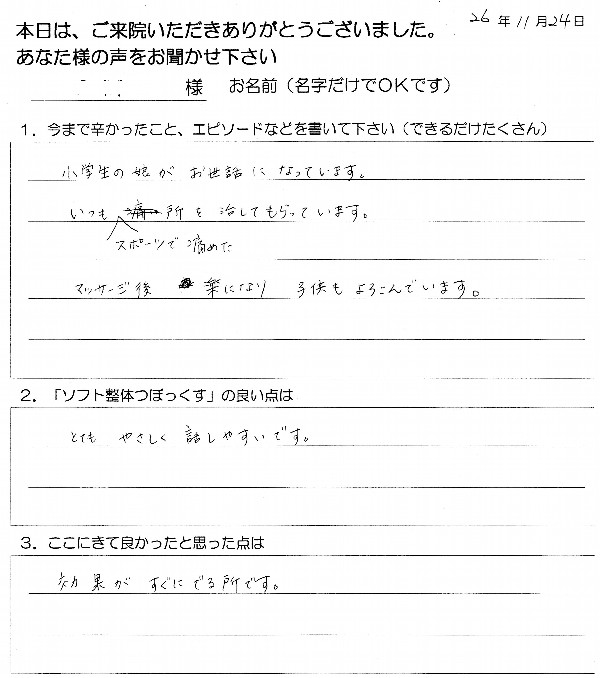 26年11月24日
本日は、ご来院いただきありがとうございました。
あなた様の声をお聞かせ下さい
様 お名前（名字だけでOKです）
1．今まで辛かったこと、エピソードなどを書いて下さい（できるだけたくさん）
小学生の娘が お世話に なっています。
いつも 所を 治してもらっています。
スポーツで痛めた
マッサージ後 楽になり 子供も よろこんでいます。
2．「ソフト整体つぼっくす」の良い点は
とても やさしく 話しやすいです。
3．ここにきて良かったと思った点は
効果が すぐにでる所です。